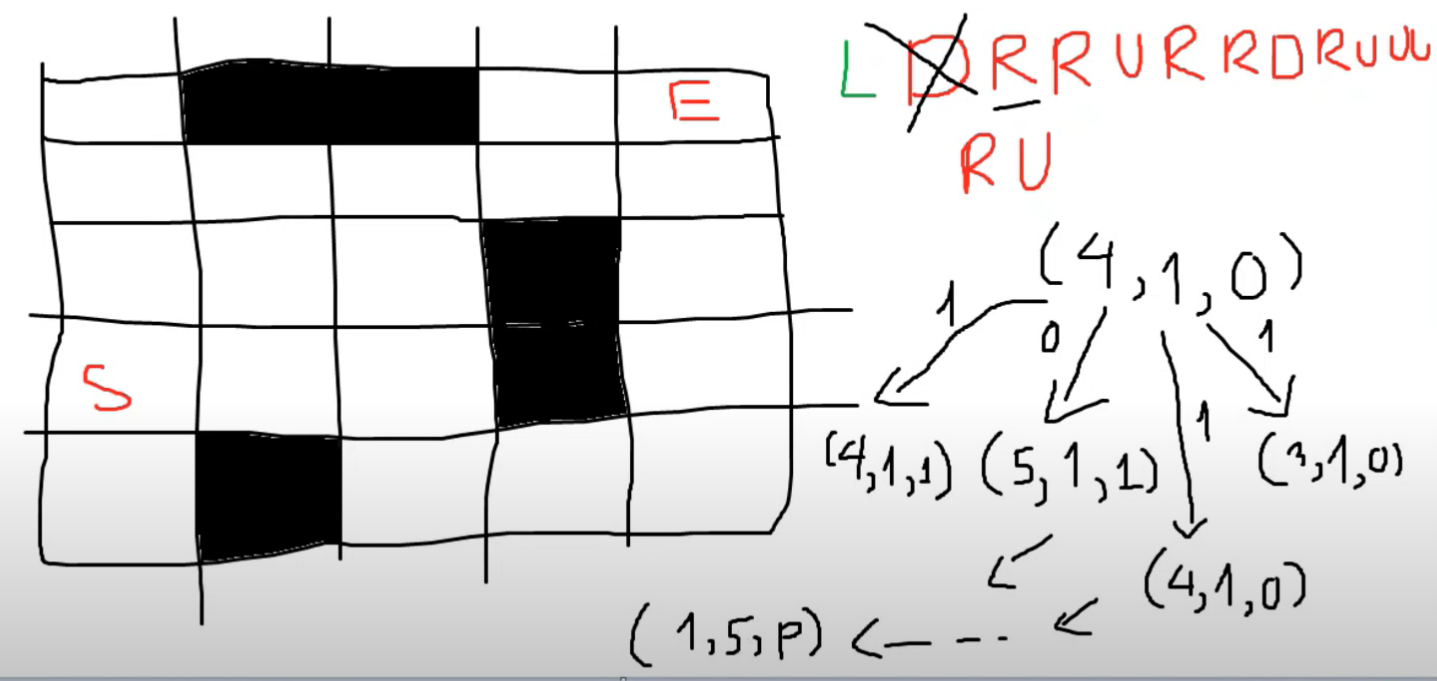 E
S
L D R R U R R D R U U L
R U
(4,1,0)
1 0 1 1
(4,1,1) (5,1,1) (3,1,0)
(4,1,0)
(1,5,p)